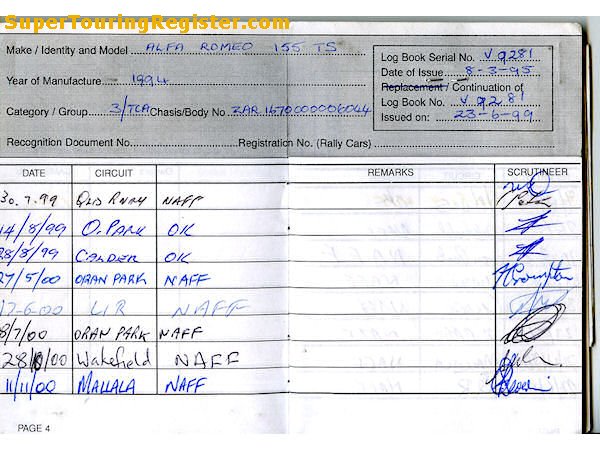 SuperTouringRegister.com
Make / Identity and Model ALFA ROMEO 155 TS
Log Book Serial No. V 9281
Date of Issue 8-3-95
Year of Manufacture 1994
Replacement / Continuation of
Log Book No. V 9281
Category / Group 3/TCA Chasis/Body No ZAR 16700000006044
Issued on: 23-6-99
Recognition Document No. Registration No. (Rally Cars)
DATE CIRCUIT REMARKS SCRUTINEER
30.7.99 NAFF
14/8/99 O. PARK OK
28/8/99 CALDER OK
27/5/00 ORAN PARK NAFF
17-6-00 NAFF
8/7/00 ORAN PARK NAFF
/00 Wakefield NAFF
11/11/00 MALLALA NAFF
PAGE 4